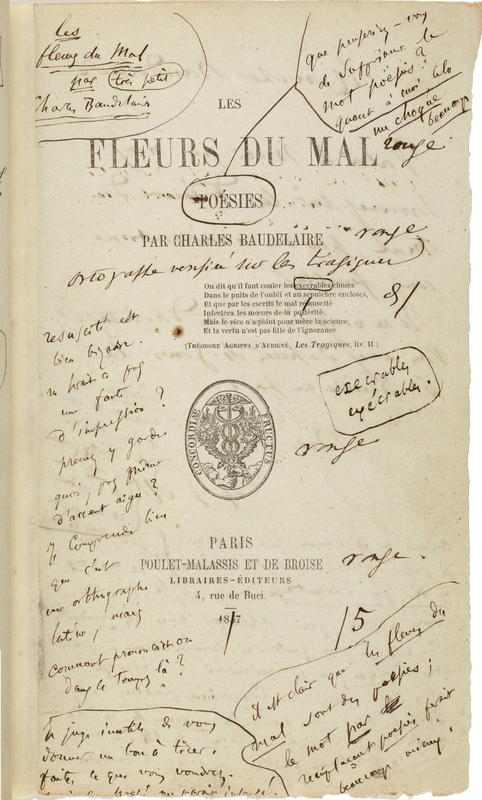 les
fleurs du Mal
par très petit
Charles Baudelaire
que penseriez-vous
de supprimer le
mot poésies?
quant à moi, cela
me choque
beaucoup
LES
FLEURS DU MAL
rouge
POÉSIES
PAR CHARLES BAUDELAIRE
rouge
ortographe verifiée sur les tragiques
On dit qu'il faut couler les execrables choses
Dans le puits de l'oubli et au sepulchre encloses,
Et que par les escrits le mal resuscité
Infectera les mœurs de la postérité;
Mais le vice n'a point pour mère la science,
Et la vertu n'est pas fille de l'ignorance
(THÉODORE AGRIPPA D'AUBIGNÉ, Les Tragiques, liv. II.)
resuscité est
bien bizarre.
ne serait-ce pas
une faute
d'impression?
prenez y garde
quoi, pas même
d'accent aigu?
Je comprends bien
que c'est
une orthographe
latine, mais
comment prononçait-on
dans le temps là?
execrables
exécrables.
CONCORDIÆ FRUCTUS
rouge
PARIS
POULET-MALASSIS ET DE BROISE
rouge.
LIBRAIRES-ÉDITEURS
4, rue de Buci.
1857
/5
il est clair que les fleurs du
mal sont des poésies;
le mot par
remplaçant poésies ferait
beaucoup mieux.
Je juge inutile de vous
donner un bon à tirer.
faites ce que vous voudrez.